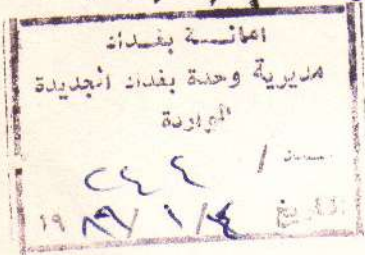 امانة بغداد
مديرية وحدة بغداد الجديدة
الواردة
العدد / ٢٤٤
التاريخ ٤/ ١ /٨٩ ١٩